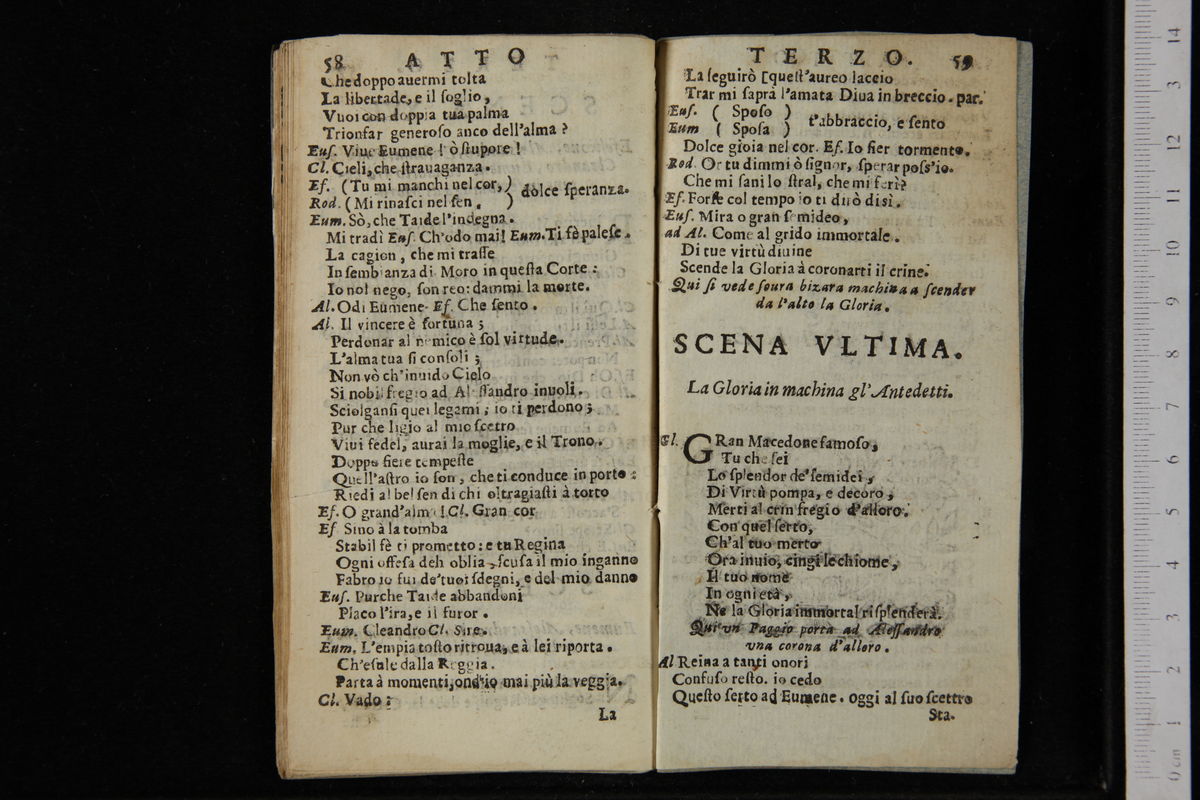 58 ATTO
Che doppo auermi tolta
La libertade, e il soglio,
Vuoi con doppia tua palma
Trionfar generoso anco dell'alma?
Eus. Viue Eumene! ò stupore!
Cl. Cieli, che strauaganza.
Ef. (Tu mi manchi nel cor,) dolce speranza.
Rod. (Mi rinasci nel sen, )
Eum. Sò, che Taide l'indegna.
Mi tradì Eus. Ch'odo mai! Eum. Ti fè palese.
La cagion, che mi trasse
In sembianza di Moro in questa Corte:
Io nol nego, son reo: dammi la morte.
Al. Odi Eumene- Ef. Che sento.
Al. Il vincere è fortuna;
Perdonar al nemico è sol virtude.
L'alma tua si consoli;
Non vò ch'inuido Cielo
Si nobil fregio ad Alessandro inuoli.
Sciolgansi quei legami; io ti perdono;
Pur che ligio al mio scetro
Viui fedel, aurai la moglie, e il Trono.
Doppo fiere tempeste
Quell'astro io son, che ti conduce in porto:
Riedi al bel sen di chi oltragiasti à torto
Ef. O grand'alma! Cl. Gran cor
Ef Sino à la tomba
Stabil fè ti prometto: e tu Regina
Ogni offesa deh oblia, scusa il mio inganno
Fabro io fui de'tuoi sdegni, e del mio danno
Eus. Purche Taide abbandoni
Placo l'ira, e il furor.
Eum. Cleandro Cl. Sire.
Eum. L'empia tosto ritroua, e à lei riporta.
Ch'esule dalla Reggia.
Parta à momenti, ond'io mai più la veggia.
Cl. Vado:
La
TERZO. 59
La seguirò [quest'aureo laccio
Trar mi saprà l'amata Diua in breccio. par.
Eus. ( Sposo ) t'abbraccio, e sento
Eum ( Sposa )
Dolce gioia nel cor. Ef. Io fier tormento.
Rod. Or tu dimmi ò signor, sperar poss'io.
Che mi sani lo stral, che mi ferì?
Ef. Forse col tempo io ti dirò di sì.
Eus. Mira o gran semideo,
ad Al. Come al grido immortale.
Di tue virtù diuine
Scende la Gloria à coronarti il crine.
Qui si vede soura bizara machina a scender
da l'alto la Gloria.
SCENA VLTIMA.
La Gloria in machina gl' Antedetti.
Gl. GRan Macedone famoso,
Tu che sei
Lo splendor de' semidei,
Di Virtù pompa, e decoro,
Merti al crin fregio d'alloro.
Con quel serto,
Ch'al tuo merto
Ora inuio, cingi le chiome,
Il tuo nome
In ogni età,
Ne la Gloria immortal risplenderà.
Qui vn Paggio porta ad Alessandro
vna corona d'alloro.
Al Reina a tanti onori
Confuso resto. io cedo
Questo serto ad Eumene. oggi al suo scettro
Sta-